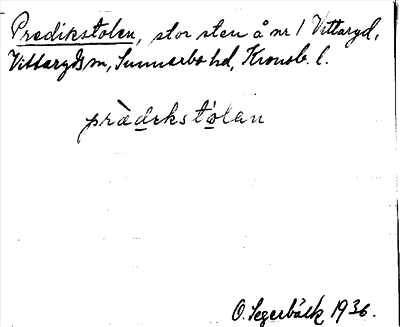 Predikstolen, stor sten å nr 1 Vittaryd,
Vittaryds sn, Sunnerbo hd, Kronob. l.
prὰdɩkstòlɐn
O. Segerbäck 1936.